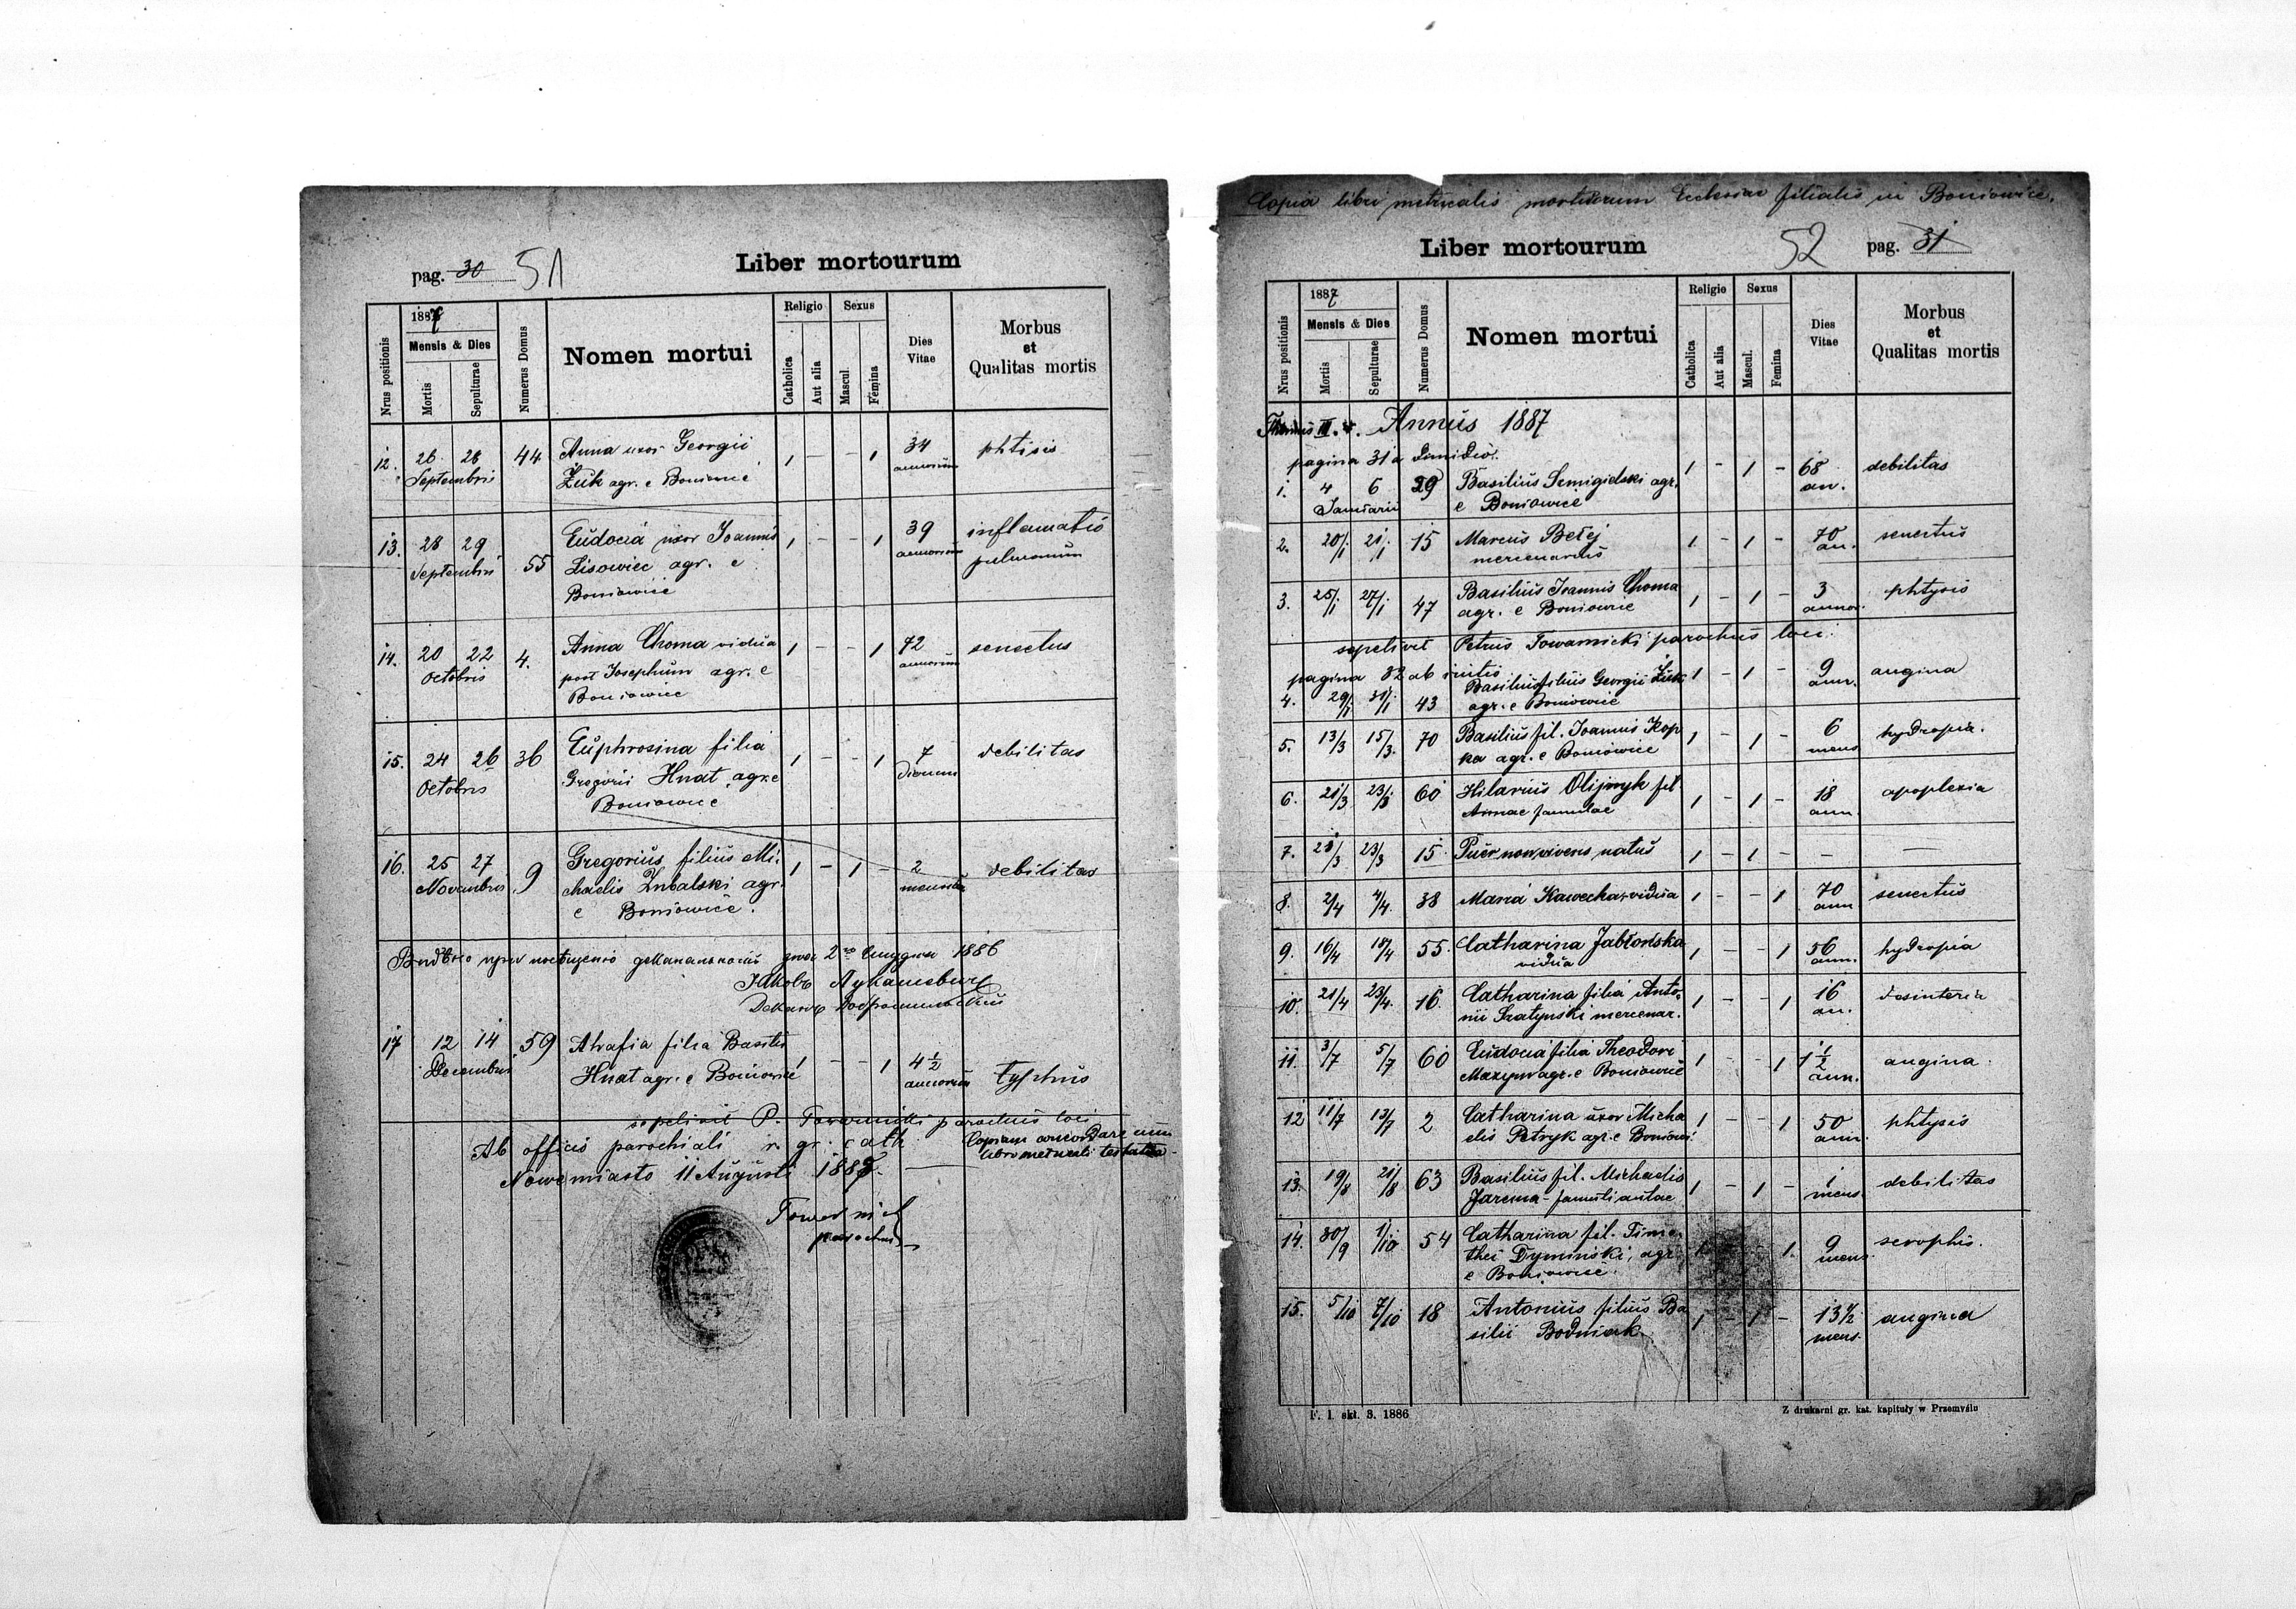 pag. 30 51
Liber mortourum
Nrus positionis
1887
Mensis & Dies
Mortis
Sepulturae
Numerus Domus
Nomen mortui
Religio
Catholica
Aut alia
Sexus
Mascul.
Femina
Dies Vitae
Morbus et Qualitas mortis
12. 26 28 44 Anna uxor Georgii 1 — — 1 34 phtisis
Septembris Żuk agr. e Boniowice annorum
13. 28 29 55 Eudocia uxor Joannis 1 — — 1 39 inflamatio
Septembris Lisowiec agr. e annorum pulmonum
Boniowice
14. 20 22 4. Anna Choma vidua 1 — — 1 72 senectus
Octobris post Josephum agr. e annorum
Boniowice
15. 24 26 36 Euphrosina filia 1 — — 1 7 debilitas
Octobris Gregorii Hnat agr. e dierum
Boniowice
16. 25 27 9 Gregorius filius Mi- 1 — 1 — 2 debilitas
Novembris chaelis Zubalski agr. mensium
e Boniowice.
1886
17 12 14 59 Atrafia filia Basilii 1 — — 1 4 1/2 typhus
Decembris Hnat agr. e Boniowice annorum
sepelivit P. Towarnicki parochus loci
Ab officio parochiali r. gr. cath. Copiam concordare cum
Nowemiasto 11 Augusti libro metricali testatur
Towarnicki
parochus
Copia libri metricalis mortuorum Ecclesiae filialis in Boniowice.
Liber mortourum 52 pag. 31
Nrus positionis
1887
Mensis & Dies
Mortis
Sepulturae
Numerus Domus
Nomen mortui
Religio
Catholica
Aut alia
Sexus
Mascul.
Femina
Dies Vitae
Morbus et Qualitas mortis
III. Annus 1887
pagina 31 a
1. 4 6 29 Basilius Semigidski agr. 1 - 1 - 68 debilitas
Januarii e Boniowice an.
2. 20/1 21/1 15 Marcus Betej 1 - 1 - 70 senectus
mercenarius an.
3. 25/1 27/1 47 Basilius Joannis Choma 1 - 1 - 3 phtysis
agr. e Boniowice annor.
sepelivit Petrus Towarnicki parochus loci.
pagina 32 ab initio
4. 29/1 31/1 43 Basilius filius Georgii Żuk 1 - 1 - 9 angina
agr. e Boniowice ann.
5. 13/3 15/3 70 Basilius fil. Joannis Kop 1 - 1 - 6 hydropia.
ka agr. e Boniowice mens
6. 21/3 23/3 60 Hilarius Olijnyk fil. 1 - 1 - 18 apoplexia
Annae famulae ann.
7. 21/3 23/3 15 Puer non vivens natus 1 - 1 - - —
8. 2/4 4/4. 38 Maria Kawecka vidua 1 - - 1 70 senectus
ann
9. 16/4 18/4 55. Catharina Jabłońska 1 - - 1 56 hydropia
vidua ann.
10. 21/4 23/4. 16. Catharina filia Anto- 1 - - 1 16 desinteria
nii mercenar. an.
11. 3/7 5/7 60 Eudocia filia Theodori 1 - - 1 1 1/2 angina
Maxym agr. e Boniowice ann.
12 11/7 13/7 2 Catharina uxor Micha 1 - - 1 50 phtysis
elis Petryk agr. e Boniowi. ann.
13. 19/8 21/8 63 Basilius fil. Michaelis 1 - 1 - 1 debilitas
Jarema - famuli aulae mens.
14. 30/9 1/10 54 Catharina fil. Timo- 1 1. 9 scrophis.
thei Dyminski, agr. mens.
e Boniowice.
15. 5/10 7/10 18 Antonius filius Ba 1 - 1 - 13 1/2 angina
silii Bodniak. mens.
F. 1. skł. 3. 1886
Z drukarni gr. kat. kapituły w Przemyślu